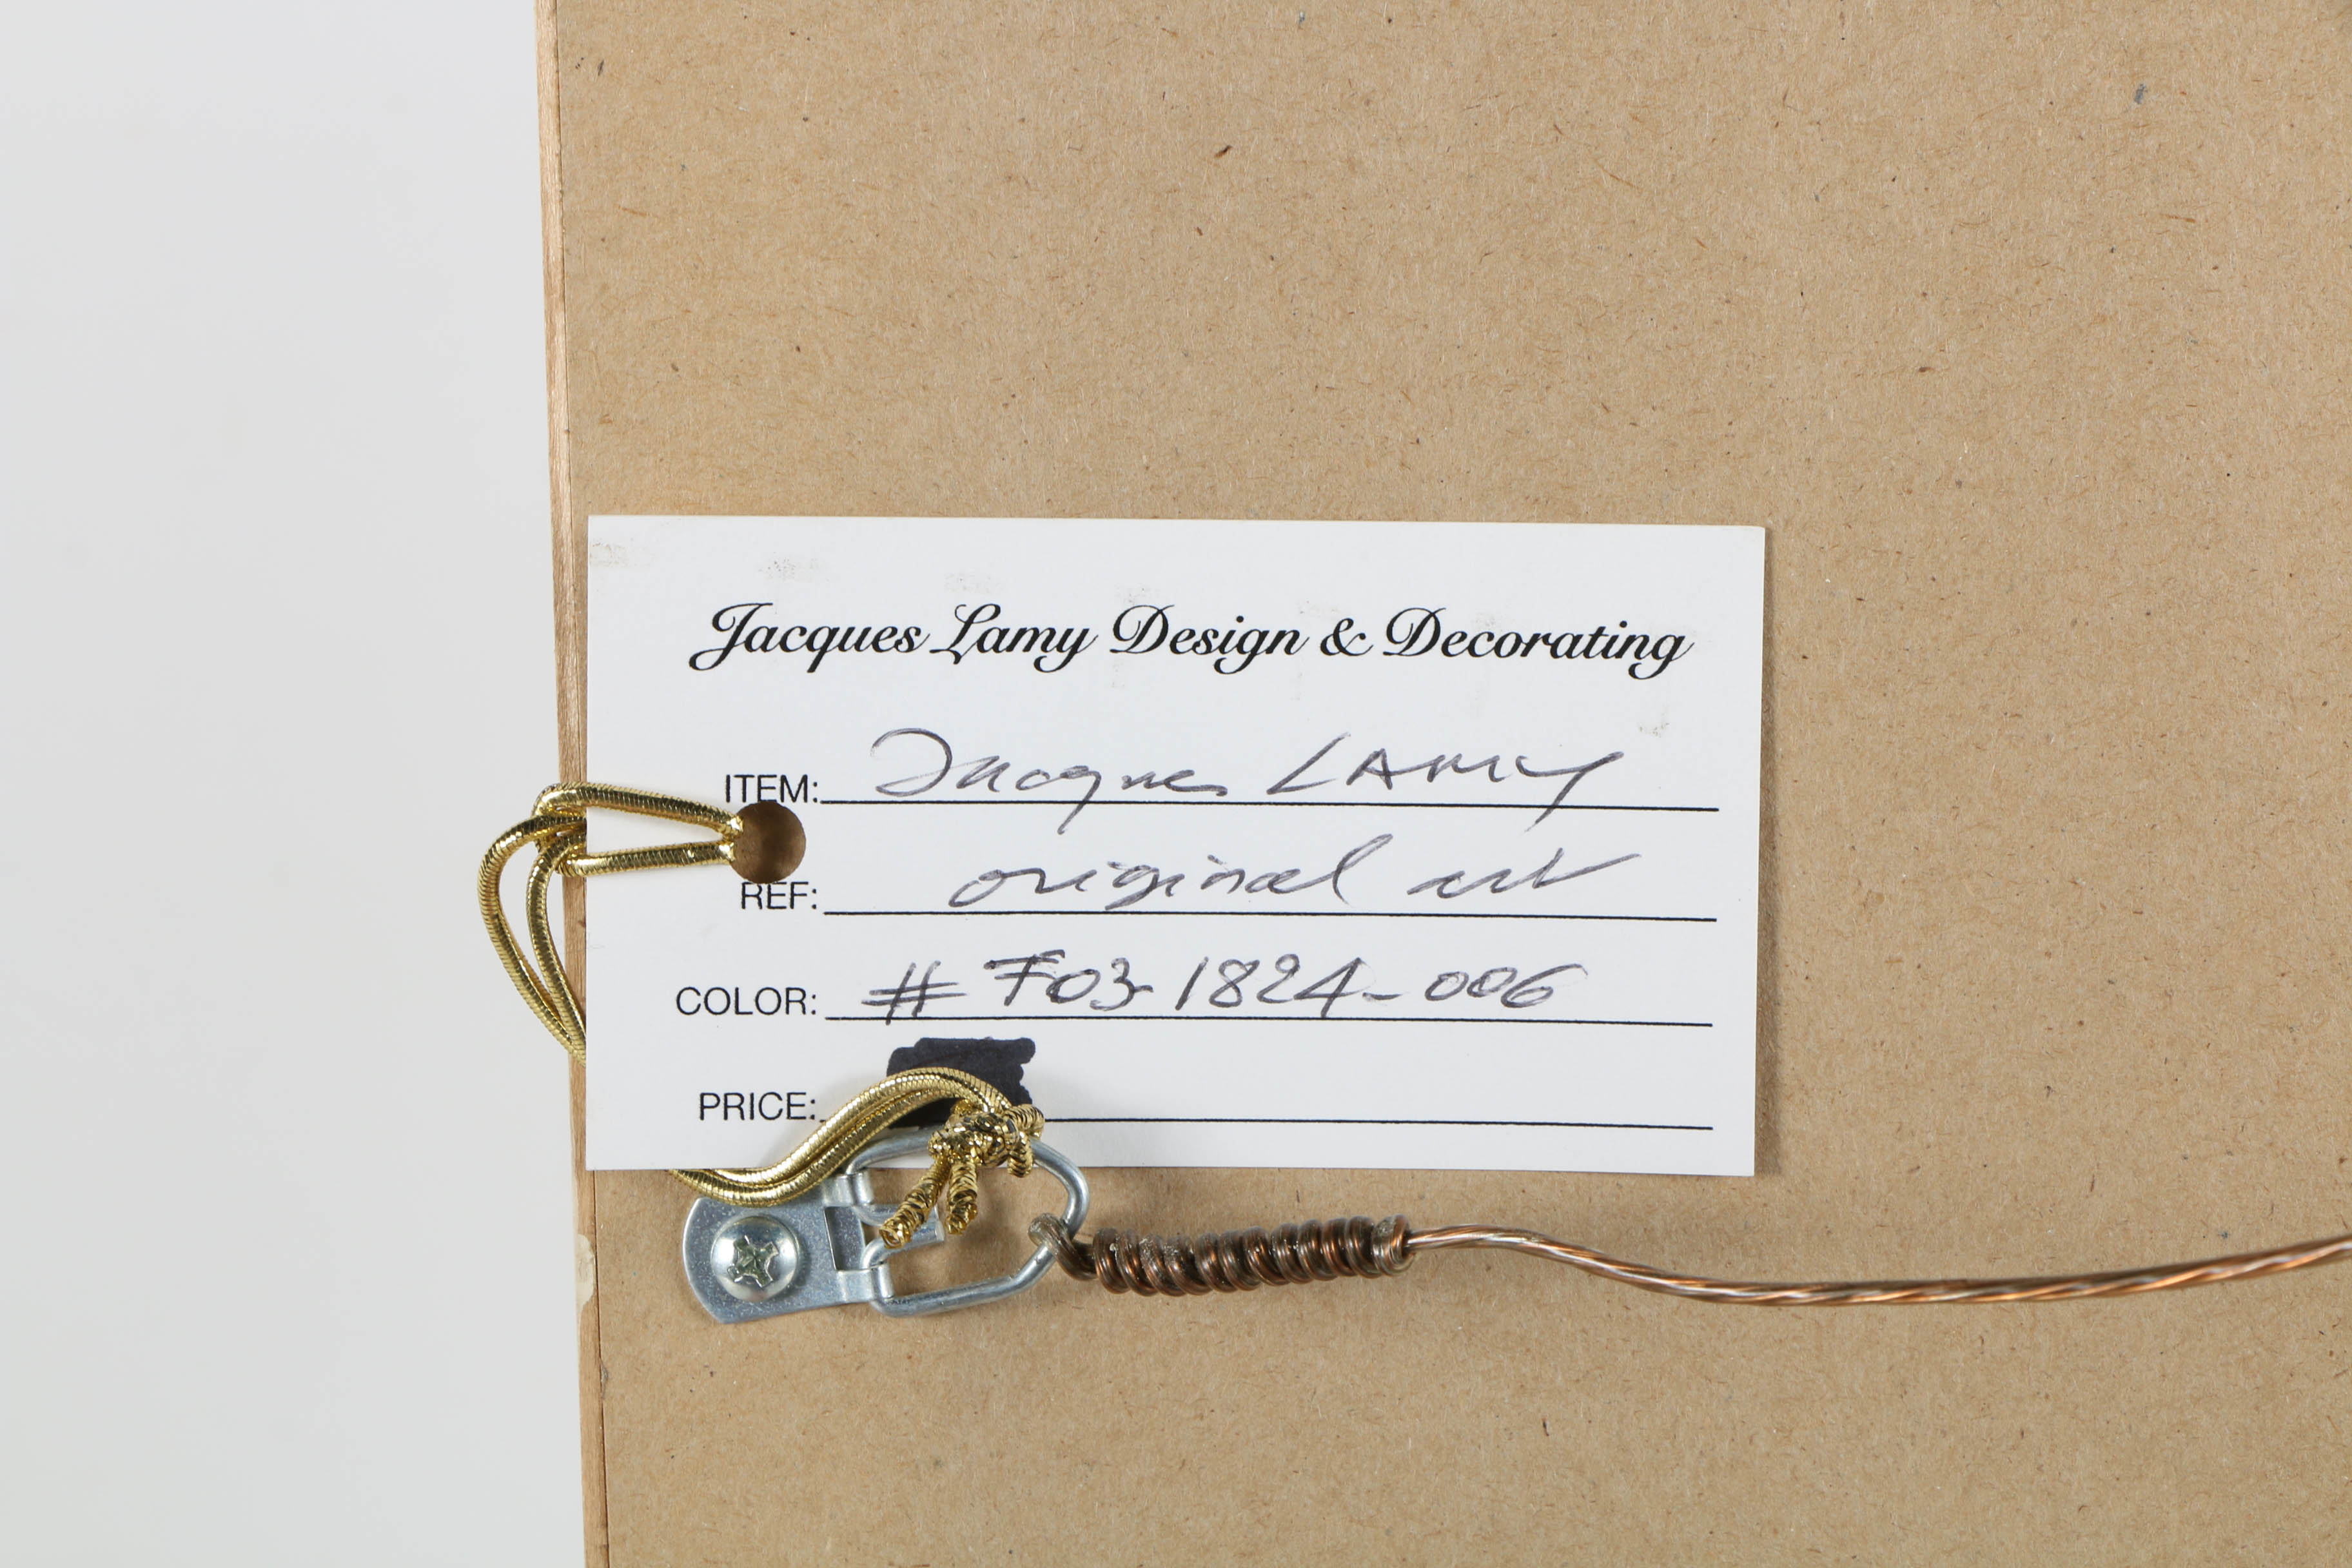 Jacques Lamy Design & Decorating
ITEM: Jacques LAMY
REF: original art
COLOR: # F03-1824-006
PRICE: